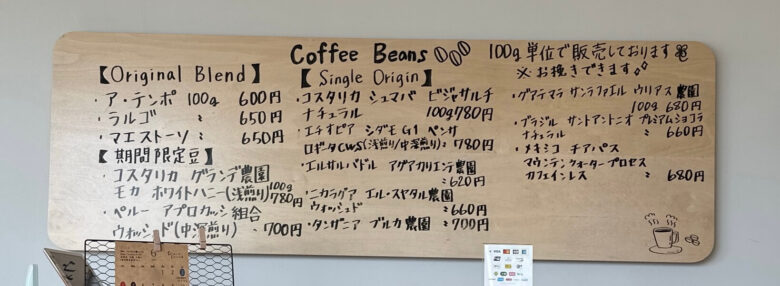 Coffee Beans
100g単位で販売しております
※お挽きできます
【Original Blend】
・ア・テンポ 100g 600円
・ラルゴ 〃 650円
・マエストーソ 〃 650円
【期間限定豆】
・コスタリカ グランデ農園
モカ ホワイトハニー(浅煎り)100g 780円
・ペルー アプロカッシ組合
ウォッシュド(中深煎り) 〃 700円
【Single Origin】
・コスタリカ シュマバ ビジャサルチ
ナチュラル 100g780円
・エチオピア シダモG1 ベンサ
ロギータCWS(浅煎り/中深煎り)〃780円
・エルサルバドル アグアカリエンテ農園
〃620円
・ニカラグア エル・スヤタル農園
ウォッシュド 〃660円
・タンザニア ブルカ農園 〃700円
・グアテマラ サンラファエル ウリアス農園
100g 680円
・ブラジル サントアントニオ プレミアムショコラ
ナチュラル 〃 660円
・メキシコ チアパス
マウンテンウォータープロセス
カフェインレス 〃 680円
6